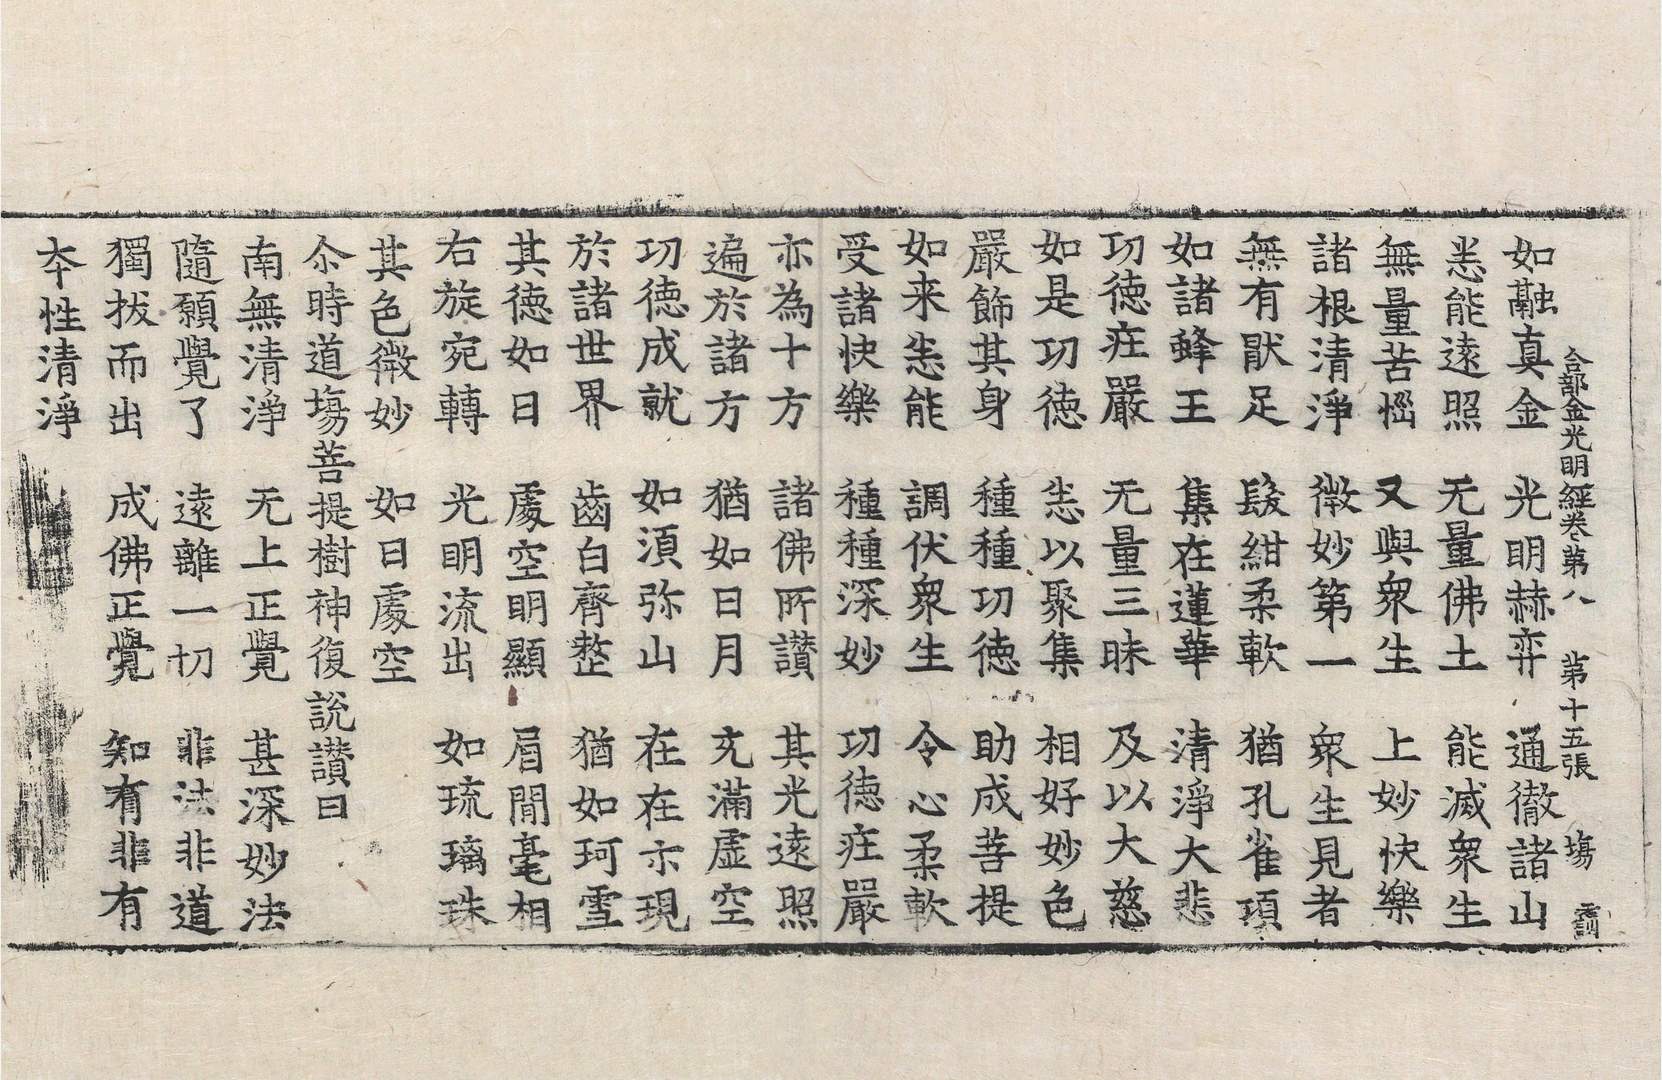 合部金光明經卷第八　第十五張　塲
如融真金　光明赫弈　通徹諸山
悉能遠照　无量佛土　能滅衆生
無量苦惱　又與衆生　上妙快樂
諸根清淨　微妙第一　衆生見者
無有猒足　髮紺柔軟　猶孔雀項
如諸蜂王　集在蓮華　清淨大悲
功徳庄嚴　无量三昧　及以大慈
如是功徳　悉以聚集　相好妙色
嚴飾其身　種種功徳　助成菩提
如来悉能　調伏衆生　令心柔軟
受諸快樂　種種深妙　功徳庄嚴
亦為十方　諸佛所讃　其光遠照
遍於諸方　猶如日月　充滿虛空
功徳成就　如湏弥山　在在示現
於諸世界　齒白齊整　猶如珂雪
其徳如日　處空明顯　眉間毫相
右旋宛轉　光明流出　如琉璃珠
其色微妙　如日處空
尒時道塲菩提樹神復說讃曰
南無清淨　无上正覺　甚深妙法
隨順覺了　遠離一切　非法非道
獨拔而出　成佛正覺　知有非有
夲性清淨